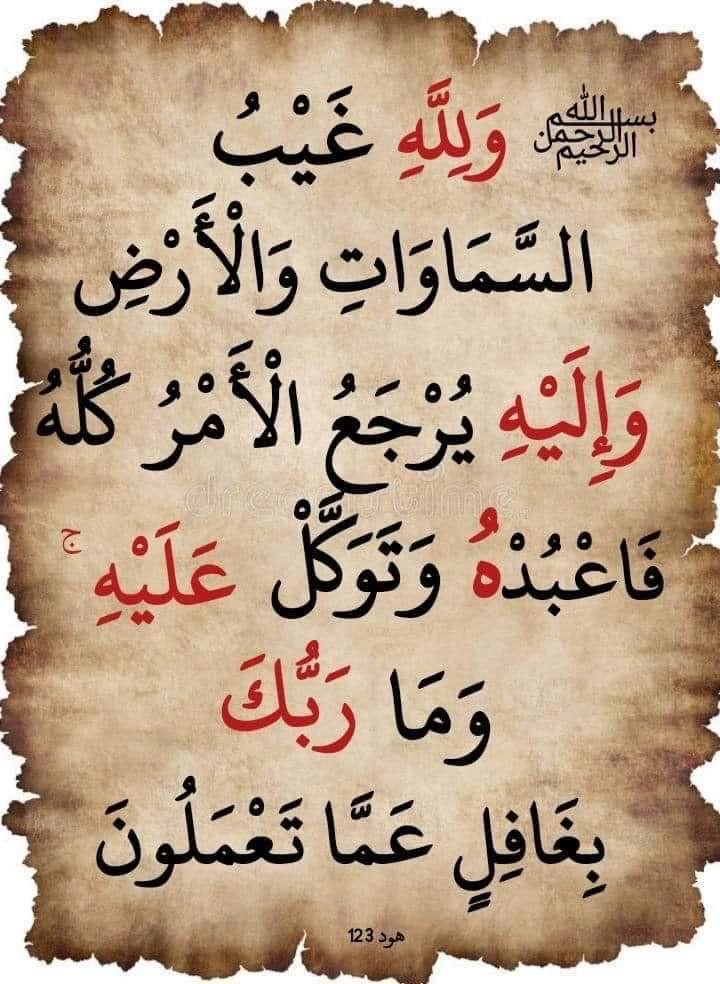 بسم الله الرحمن الرحيم وَلِلَّهِ غَيْبُ
السَّمَاوَاتِ وَالْأَرْضِ
وَإِلَيْهِ يُرْجَعُ الْأَمْرُ كُلُّهُ
فَاعْبُدْهُ وَتَوَكَّلْ عَلَيْهِ ۚ
وَمَا رَبُّكَ
بِغَافِلٍ عَمَّا تَعْمَلُونَ
هود 123
dreamstime